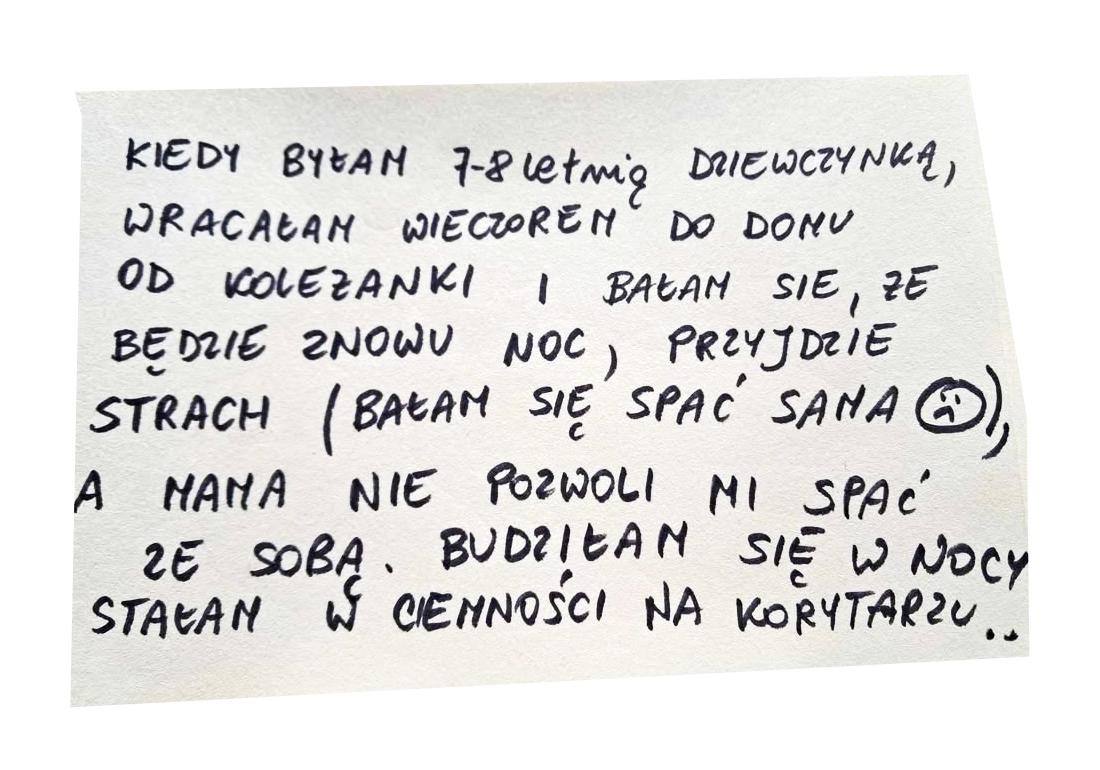 KIEDY BYŁAM 7-8 letnią DZIEWCZYNKĄ,
WRACAŁAM WIECZOREM DO DOMU
OD KOLEŻANKI I BAŁAM SIE, ŻE
BĘDZIE ZNOWU NOC, PRZYJDZIE
STRACH (BAŁAM SIĘ SPAĆ SAMA ☹),
A MAMA NIE POZWOLI MI SPAĆ
ZE SOBĄ. BUDZIŁAM SIĘ W NOCY
STAŁAM W CIEMNOŚCI NA KORYTARZU..